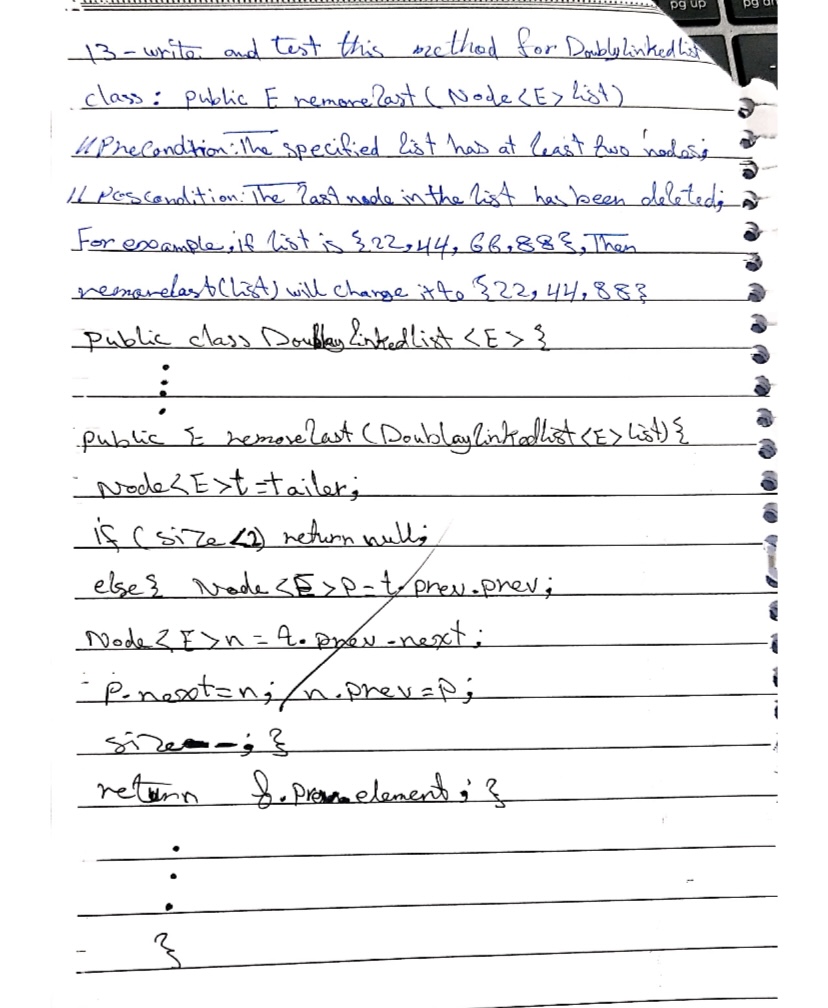 pg up
13 - write and test this method for DoublyLinkedList
class : public E removelast ( Node <E> list )
// PreCondtion : The specified list has at least two nodes;
// Poscondition : The last node in the list has been deleted;
For example, if list is {22, 44, 66, 88}, Then
removelast (list) will change it to {22, 44, 88}
public class DoublayLinkedlist <E> {
public E removelast ( Doublaylinkedlist <E> list ) {
Node <E> t = tailer;
if ( size <2) return null;
else { Node <E> p = t.prev.prev ;
Node <E> n = t. prev .next ;
p.next = n; n.prev = p ;
size -- ; }
return element ; }
}